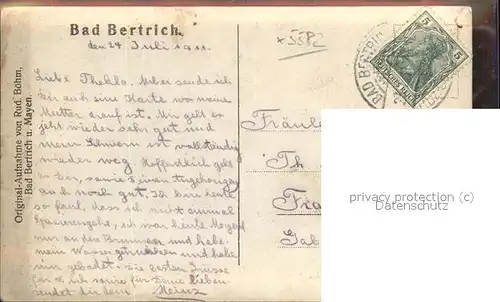 Bad Bertrich.
den 24 Juli 1911.
Liebe Thekla. Anbei sende ich
Dir auch eine Karte wo meine
Mutter drauf ist. Mir geht es
jetzt wieder sehr gut und
mein ist vollständig
wieder weg. Hoffentlich geht
es Deinen Angehörigen
auch noch gut. Ich bin heute
so faul, dass ich nicht einmal
spazierengehe, ich war heute Morgen
nur an den Brunnen und habe
mein Wasser getrunken und habe
mich gebadet. Die besten Grüsse
für Dich sowie für Deine Lieben
sendet Dir dein Heinz
Original-Aufnahme von Rud. Böhm,
Bad Bertrich u. Mayen.
5 5
DEUTSCHES REICH
BAD BERTRICH
Fräule
Th
Fra
privacy protection (c)
Datenschutz